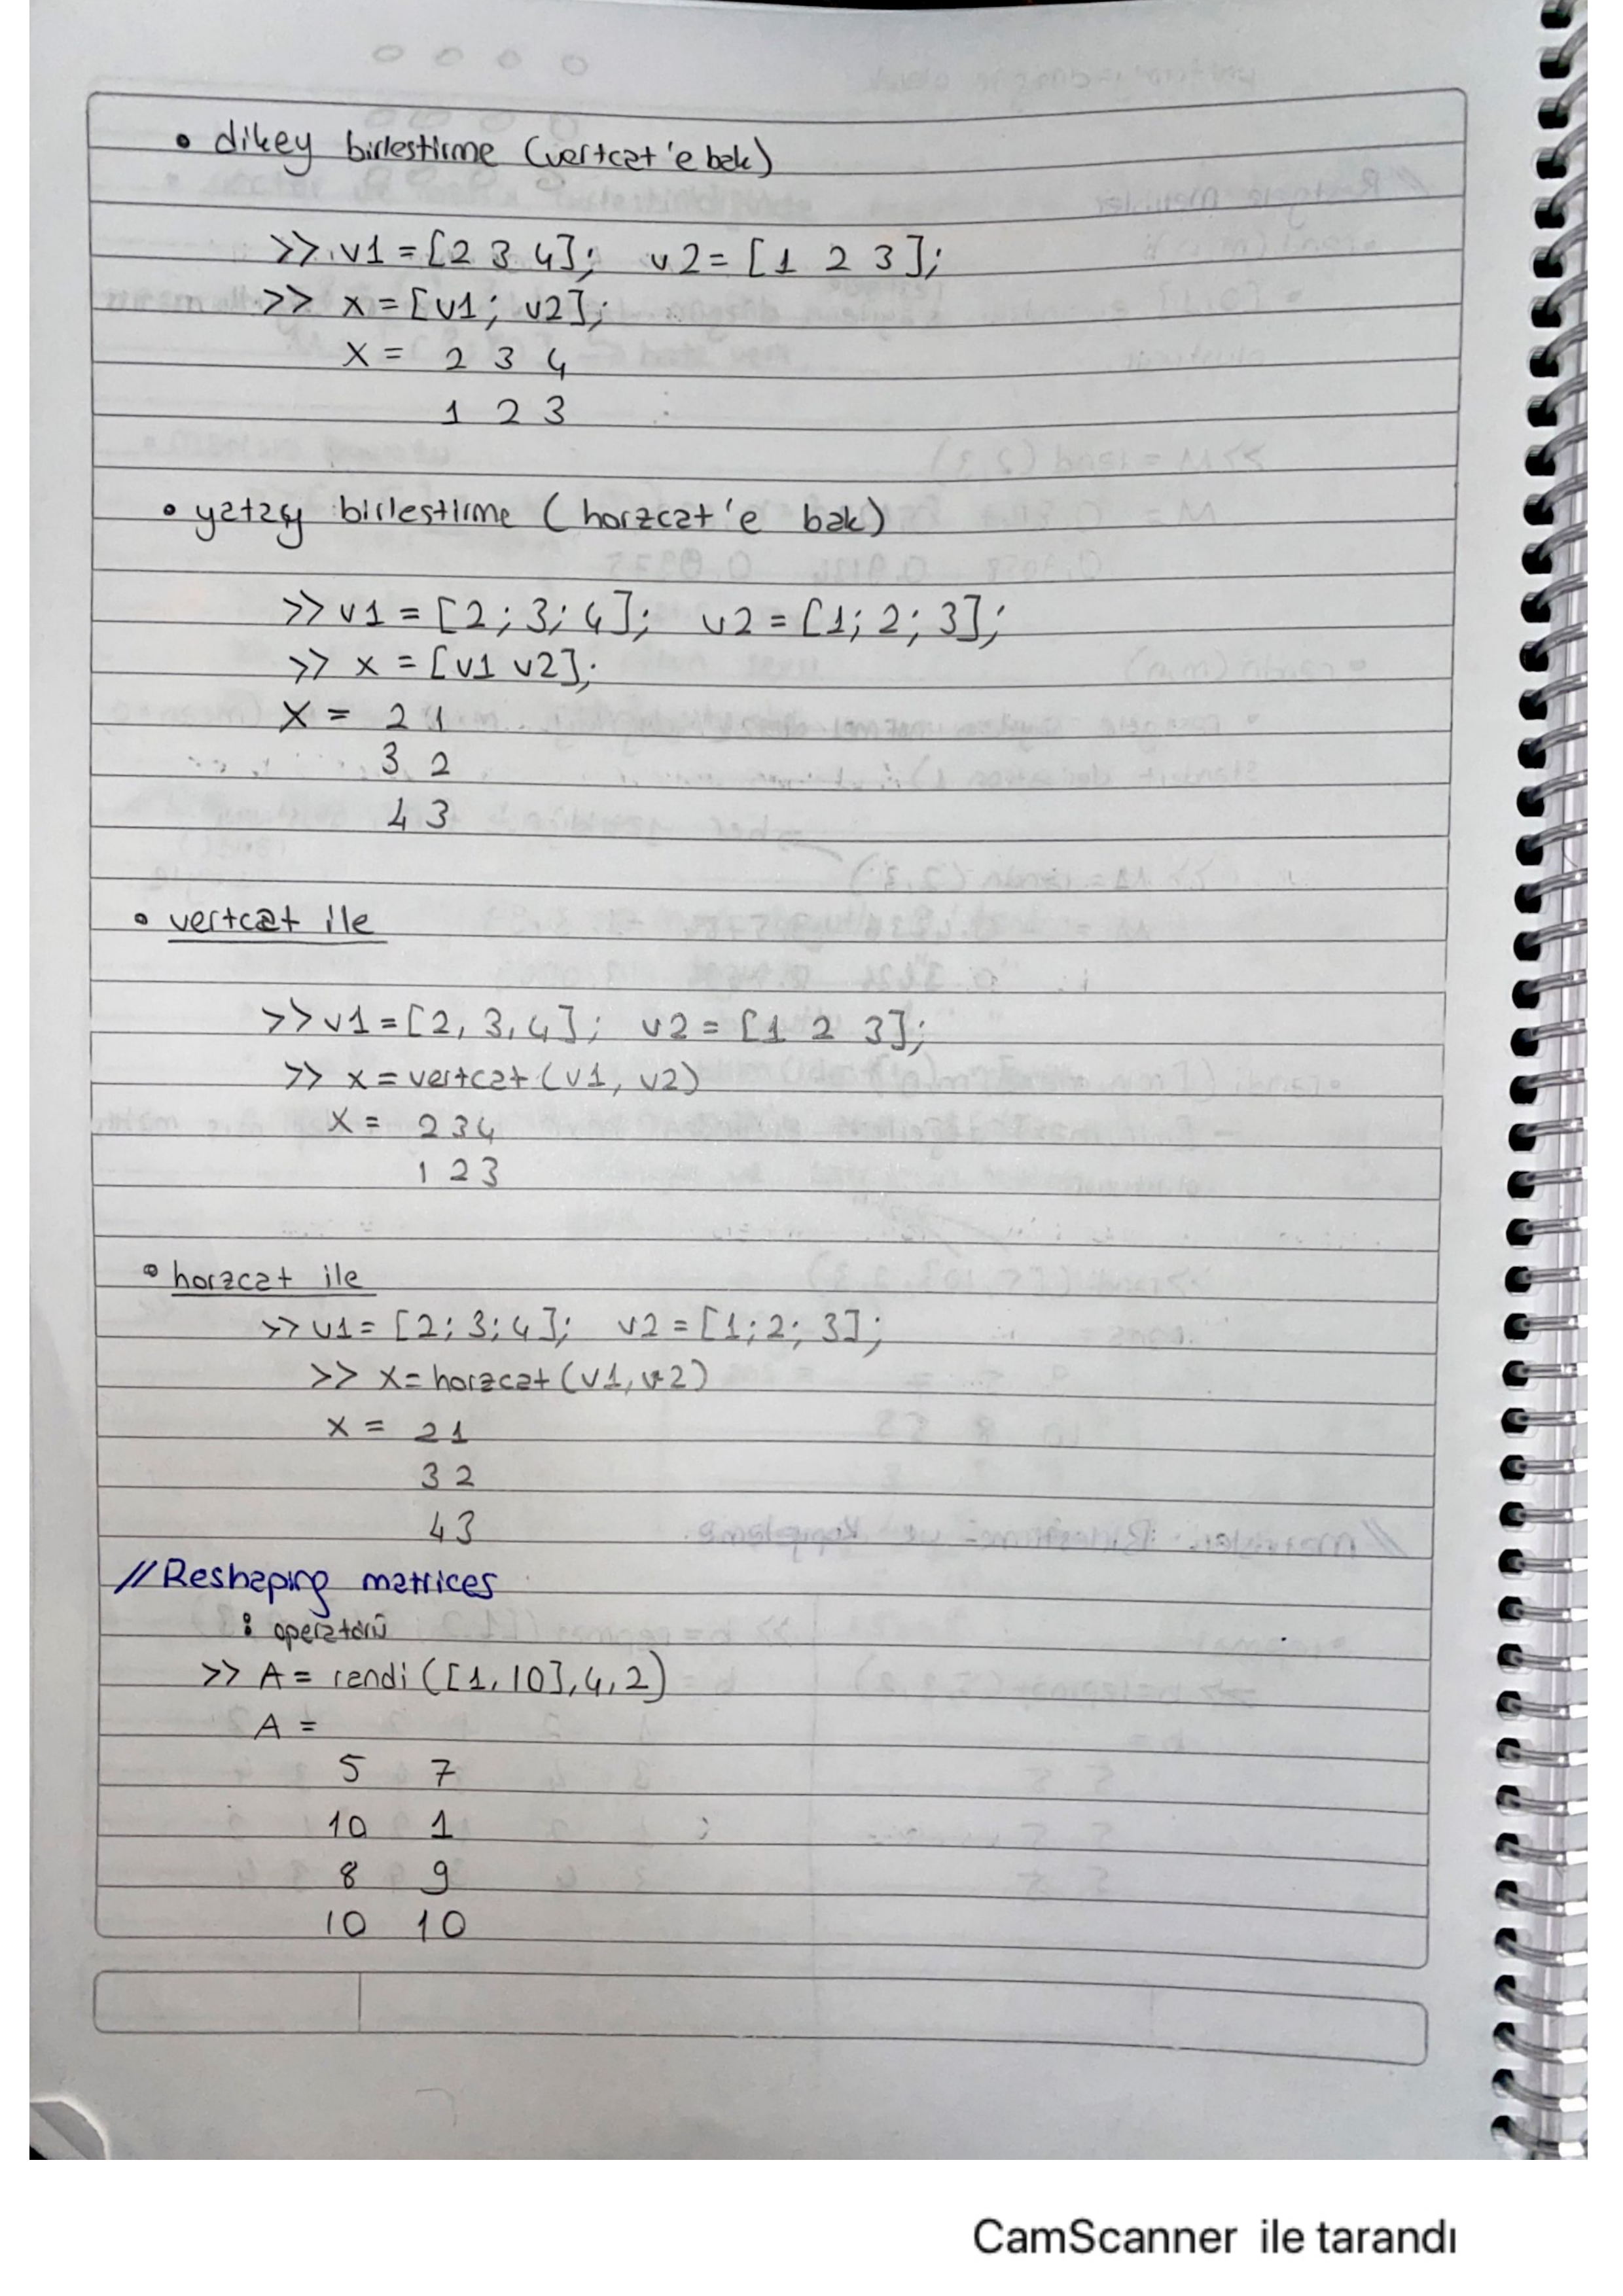 • dikey birlestirme (vertcat'e bak)
>> v1 = [2 3 4]; v2 = [1 2 3];
>> x = [v1; v2];
x = 2 3 4
1 2 3
• yatay birlestirme (horzcat'e bak)
>> v1 = [2; 3; 4]; v2 = [1; 2; 3];
>> x = [v1 v2];
x = 2 1
3 2
4 3
• vertcat ile
>> v1 = [2, 3, 4]; v2 = [1 2 3];
>> x = vertcat (v1, v2)
x = 2 3 4
1 2 3
• horzcat ile
>> v1 = [2; 3; 4]; v2 = [1; 2; 3];
>> x = horzcat (v1, v2)
x = 2 1
3 2
4 3
// Reshaping matrices
: operatörü
>> A = randi ([1, 10], 4, 2)
A =
5 7
10 1
8 9
10 10
CamScanner ile tarandı